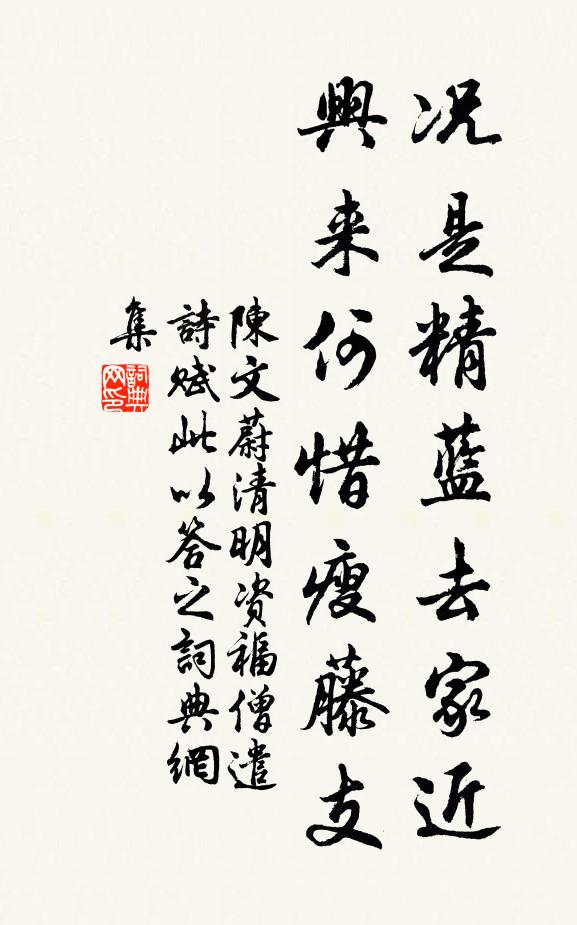 况是精蓝去家近
興来何惜瘦藤支
陳文蔚清明资福僧遣
詩賦此以答之詞典網
集
詞典網印